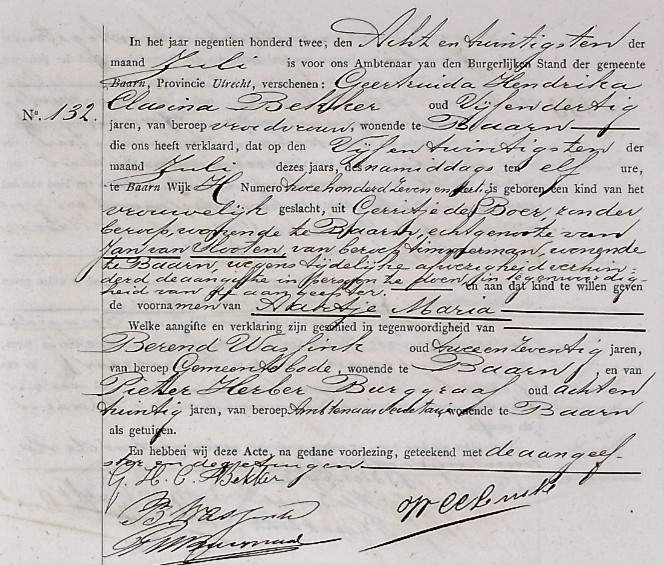 In het jaar negentien honderd twee, den Acht en twintigsten der
maand Juli is voor ons Ambtenaar van den Burgerlijken Stand der gemeente
Baarn, Provincie Utrecht, verschenen: Geertruida Hendrika
No. 132. Clasina Bekker oud Vijf en dertig
jaren, van beroep vroedvrouw, wonende te Baarn
die ons heeft verklaard, dat op den Vijf en twintigsten der
maand Juli dezes jaars, des namiddags ten elf ure,
te Baarn Wijk H Numero twee honderd zeven en dertig is geboren een kind van het
vrouwelijk geslacht, uit Gerritje de Boer, zonder
beroep, wonende te Baarn, echtgenoote van
Jan van Slooten, van beroep timmerman, wonende
te Baarn, wegens tijdelijke afwezigheid verhin-
derd de aangifte in persoon te doen, in tegenwoordig-
heid van de aangeefster. en aan dat kind te willen geven
de voornamen van Aartje Maria
Welke aangifte en verklaring zijn geschied in tegenwoordigheid van
Berend Wassink oud twee en zeventig jaren,
van beroep Gemeentebode, wonende te Baarn en van
Pieter Herber Burggraaf oud acht en
twintig jaren, van beroep Ambtenaar Secretarie wonende te Baarn
als getuigen.
En hebben wij deze Acte, na gedane voorlezing, geteekend met de aangeef-
ster en de getuigen
G. H. C. Bekker
B Wassink